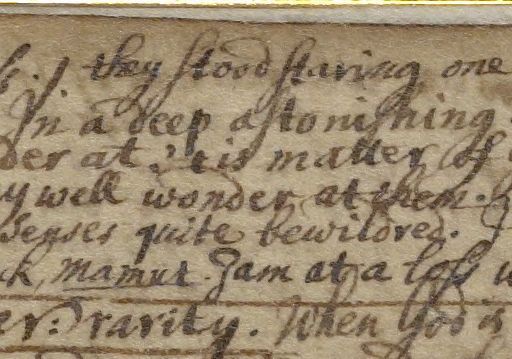 they stood staring one
In a deep astonishing
der at, 'tis matter of
y well wonder at them.
senses quite bewildred.
ck, Mamut. I am at a loss
er: rarity. When God is